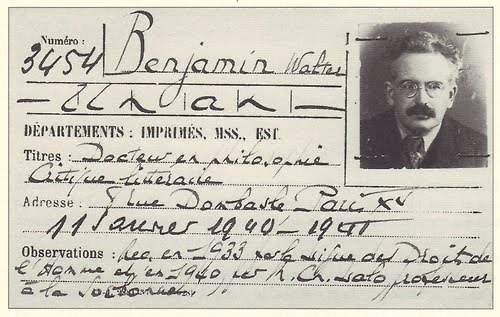 Numéro :
3454 Benjamin Walter
— Un an —
DÉPARTEMENTS : IMPRIMÉS, MSS., EST.
Titres : Docteur en philosophie
Critique litteraire
Adresse : rue Dombasle Paris XV
11 Janvier 1940 - 1941
Observations : en 1933 la Ligue des Droits de
l'Homme et en 1940 M. Ch. Lalo professeur
à la Sorbonne.